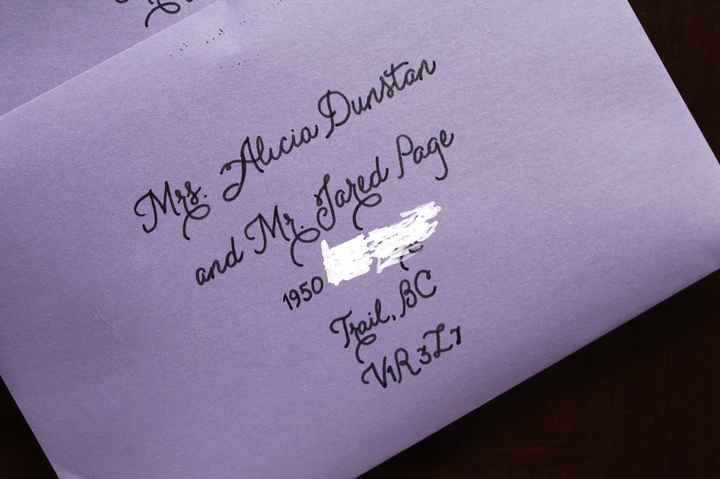 Mrs. Alicia Dunstan
and Mr. Jared Page
1950
Trail, BC
V1R 3L7